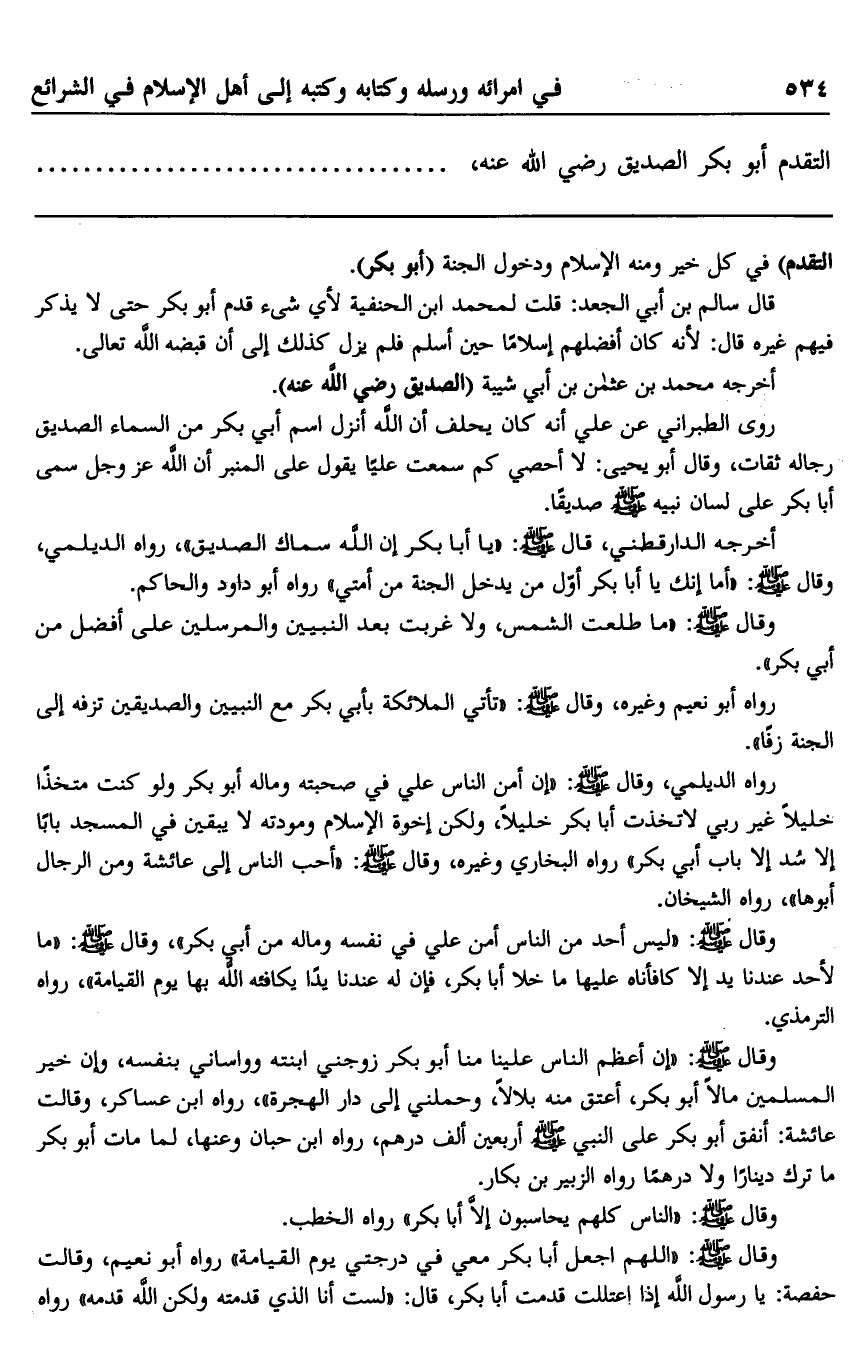 ٥٣٤ في امرائه ورسله وكتابه وكتبه إلى أهل الإسلام في الشرائع
التقدم أبو بكر الصديق رضي الله عنه، ..................................
التقدم) في كل خير ومنه الإسلام ودخول الجنة (أبو بكر).
قال سالم بن أبي الجعد: قلت لمحمد ابن الحنفية لأي شىء قدم أبو بكر حتى لا يذكر
فيهم غيره قال: لأنه كان أفضلهم إسلامًا حين أسلم فلم يزل كذلك إلى أن قبضه اللَّه تعالى.
أخرجه محمد بن عثمٰن بن أبي شيبة (الصديق رضي اللَّه عنه).
روى الطبراني عن علي أنه كان يحلف أن اللَّه أنزل اسم أبي بكر من السماء الصديق
رجاله ثقات، وقال أبو يحيى: لا أحصي كم سمعت عليًا يقول على المنبر أن اللَّه عز وجل سمى
أبا بكر على لسان نبيه ﷺ صديقًا.
أخرجه الدارقطني، قال ﷺ: «يا أبا بكر إن اللَّه سماك الصديق»، رواه الديلمي،
وقال ﷺ: «أما إنك يا أبا بكر أوّل من يدخل الجنة من أمتي» رواه أبو داود والحاكم.
وقال ﷺ: «ما طلعت الشمس، ولا غربت بعد النبيين والمرسلين على أفضل من
أبي بكر».
رواه أبو نعيم وغيره، وقال ﷺ: «تأتي الملائكة بأبي بكر مع النبيين والصديقين تزفه إلى
الجنة زفًا».
رواه الديلمي، وقال ﷺ: «إن أمن الناس علي في صحبته وماله أبو بكر ولو كنت متخذًا
خليلاً غير ربي لاتخذت أبا بكر خليلاً، ولكن إخوة الإسلام ومودته لا يبقين في المسجد بابًا
إلا سُد إلا باب أبي بكر» رواه البخاري وغيره، وقال ﷺ: «أحب الناس إلى عائشة ومن الرجال
أبوها»، رواه الشيخان.
وقال ﷺ: «ليس أحد من الناس أمن علي في نفسه وماله من أبي بكر»، وقال ﷺ: «ما
لأحد عندنا يد إلا كافأناه عليها ما خلا أبا بكر، فإن له عندنا يدًا يكافئه اللَّه بها يوم القيامة»، رواه
الترمذي.
وقال ﷺ: «إن أعظم الناس علينا منا أبو بكر زوجني ابنته وواساني بنفسه، وإن خير
المسلمين مالاً أبو بكر، أعتق منه بلالاً، وحملني إلى دار الهجرة»، رواه ابن عساكر، وقالت
عائشة: أنفق أبو بكر على النبي ﷺ أربعين ألف درهم، رواه ابن حبان وعنها، لما مات أبو بكر
ما ترك دينارًا ولا درهمًا رواه الزبير بن بكار.
وقال ﷺ: «الناس كلهم يحاسبون إلاَّ أبا بكر» رواه الخطب.
وقال ﷺ: «اللهم اجعل أبا بكر معي في درجتي يوم القيامة» رواه أبو نعيم، وقالت
حفصة: يا رسول اللَّه إذا اعتللت قدمت أبا بكر، قال: «لست أنا الذي قدمته ولكن اللَّه قدمه» رواه